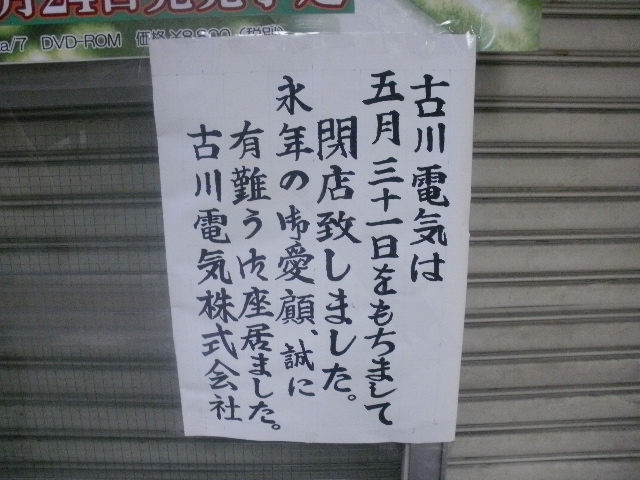 月24日発売予定
a/7 DVD-ROM 価格¥8,800(税別)
古川電気は
五月三十一日をもちまして
閉店致しました。
永年の御愛顧、誠に
有難う御座居ました。
古川電気株式会社